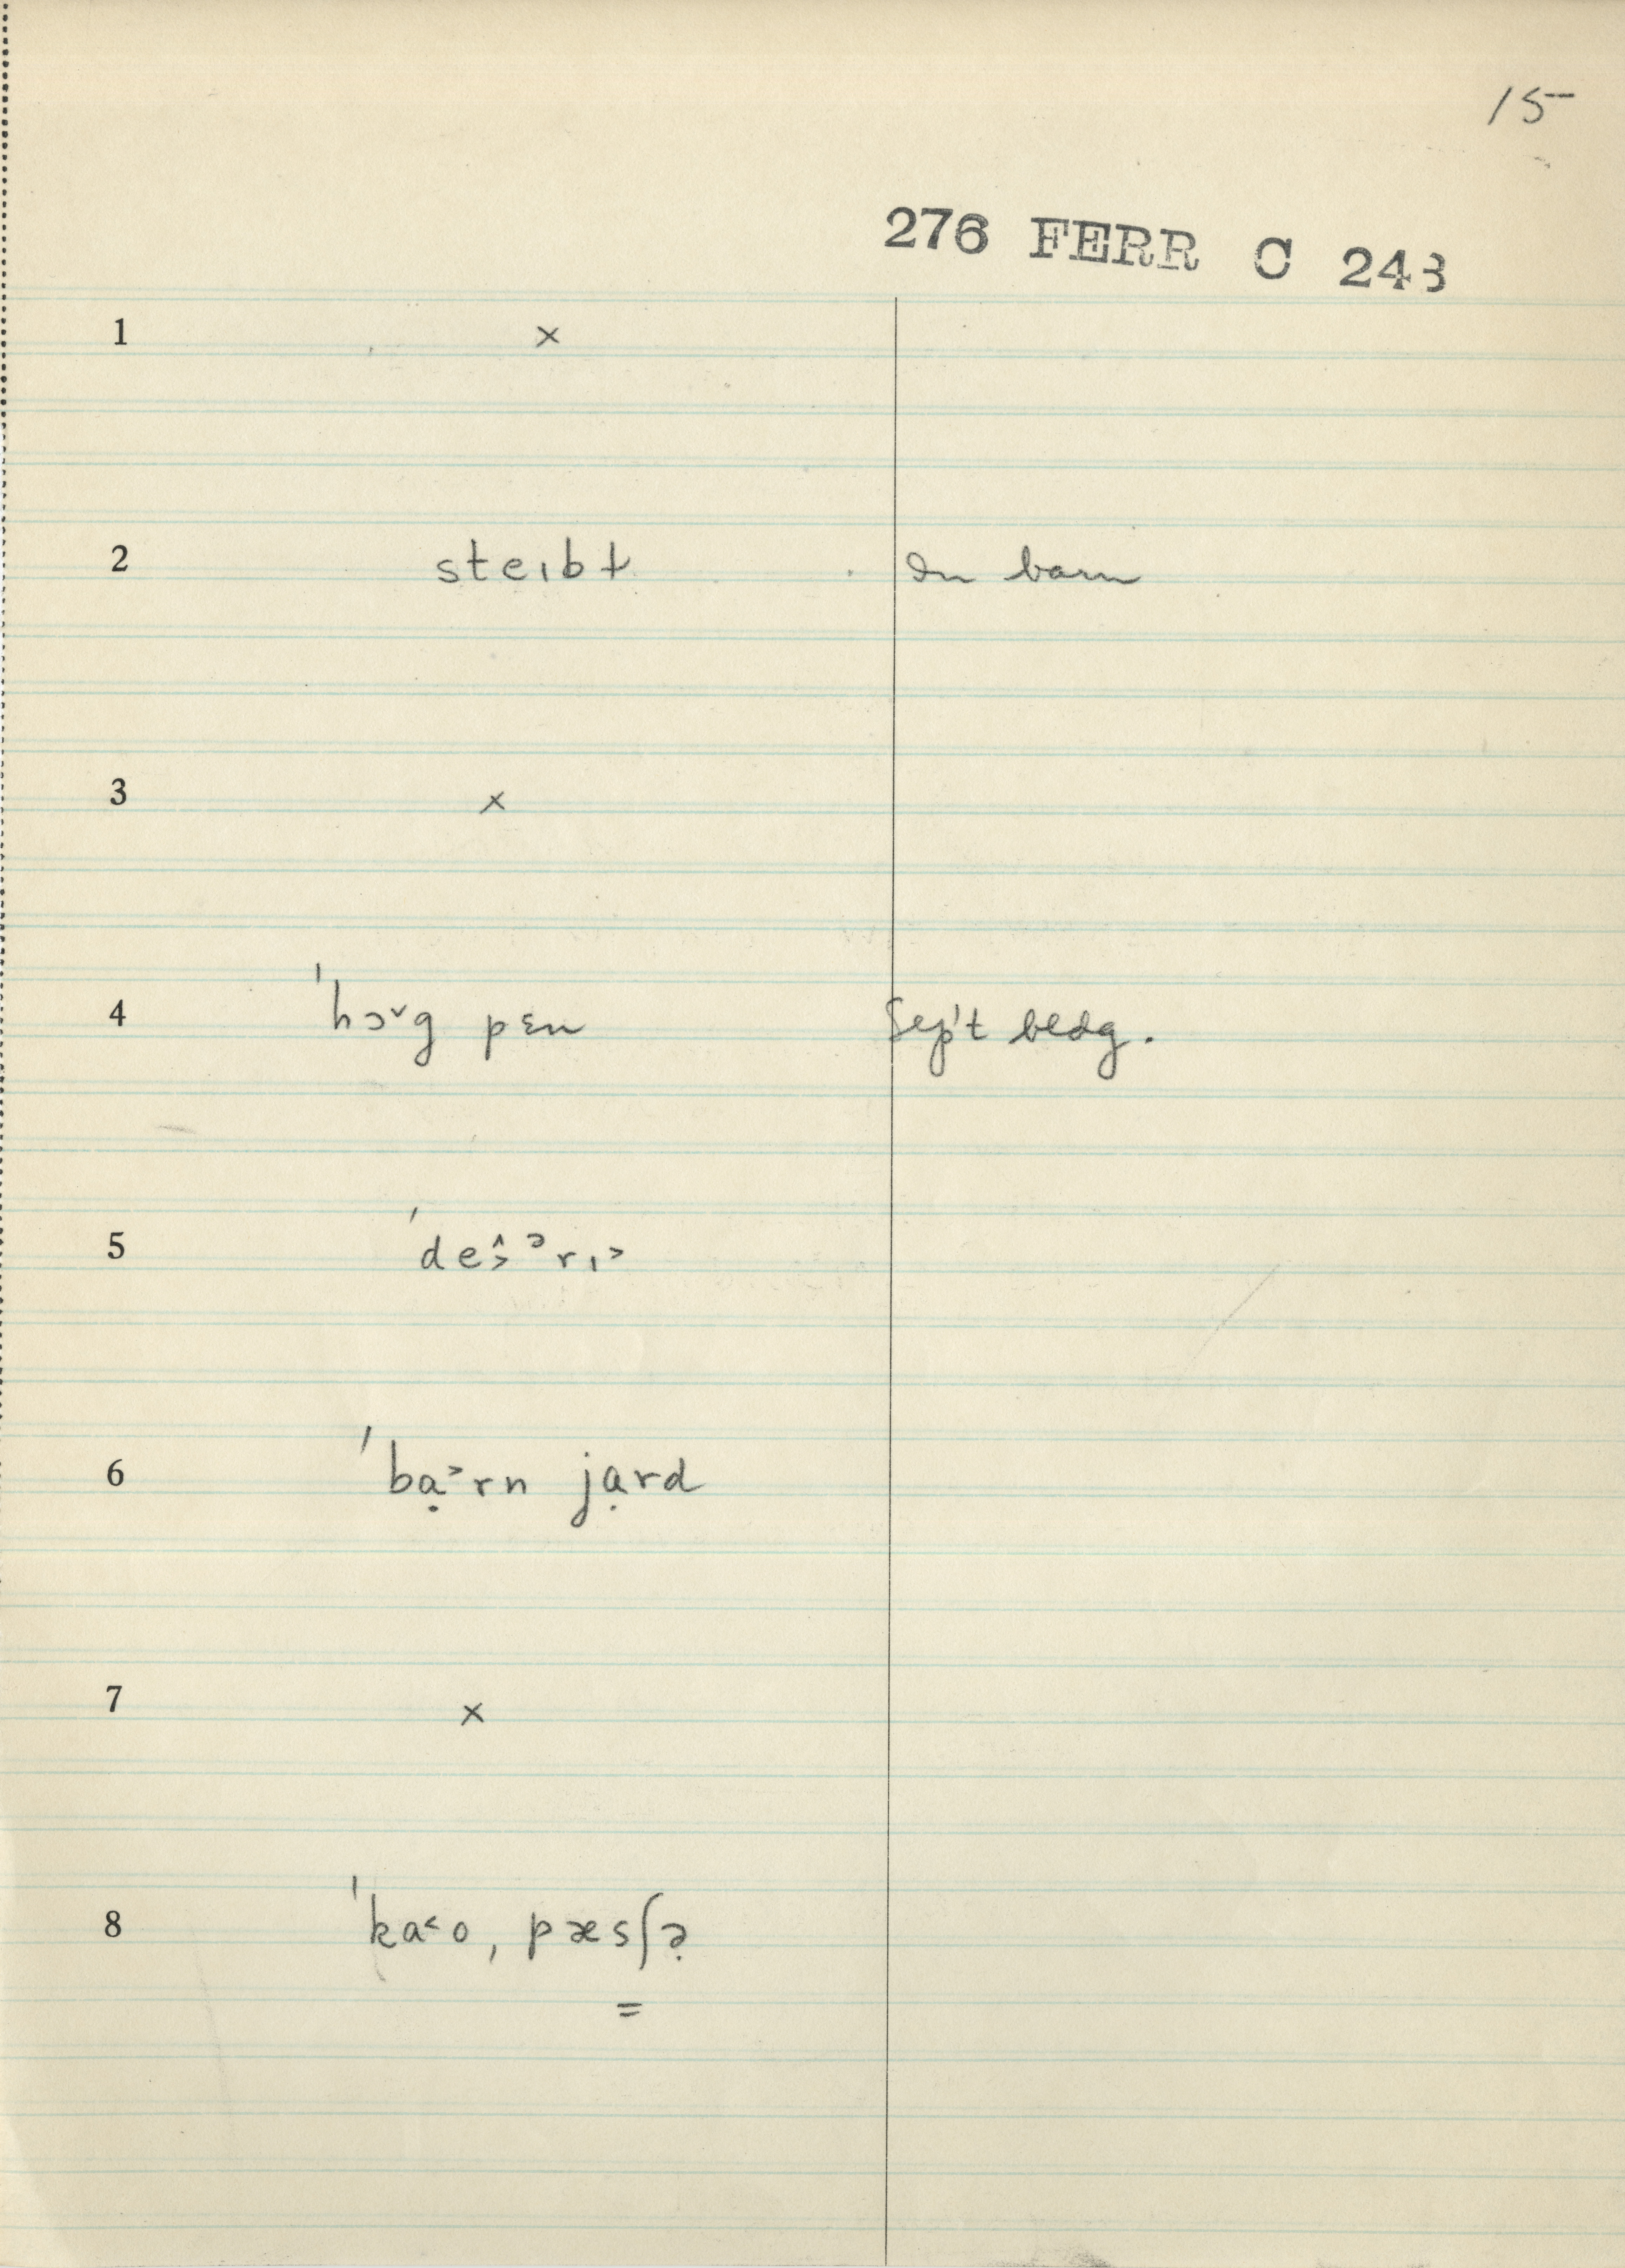 15
276 FERR C 243
1 ×
2 steɪbɫ In barn
3 ×
4 ˈhɔ˅g pɛn Sep't bldg.
5 ˈde
6 ˈbạ˃rn jạrd
7 ×
8 ˈka˂o, pæsʃə̣
=